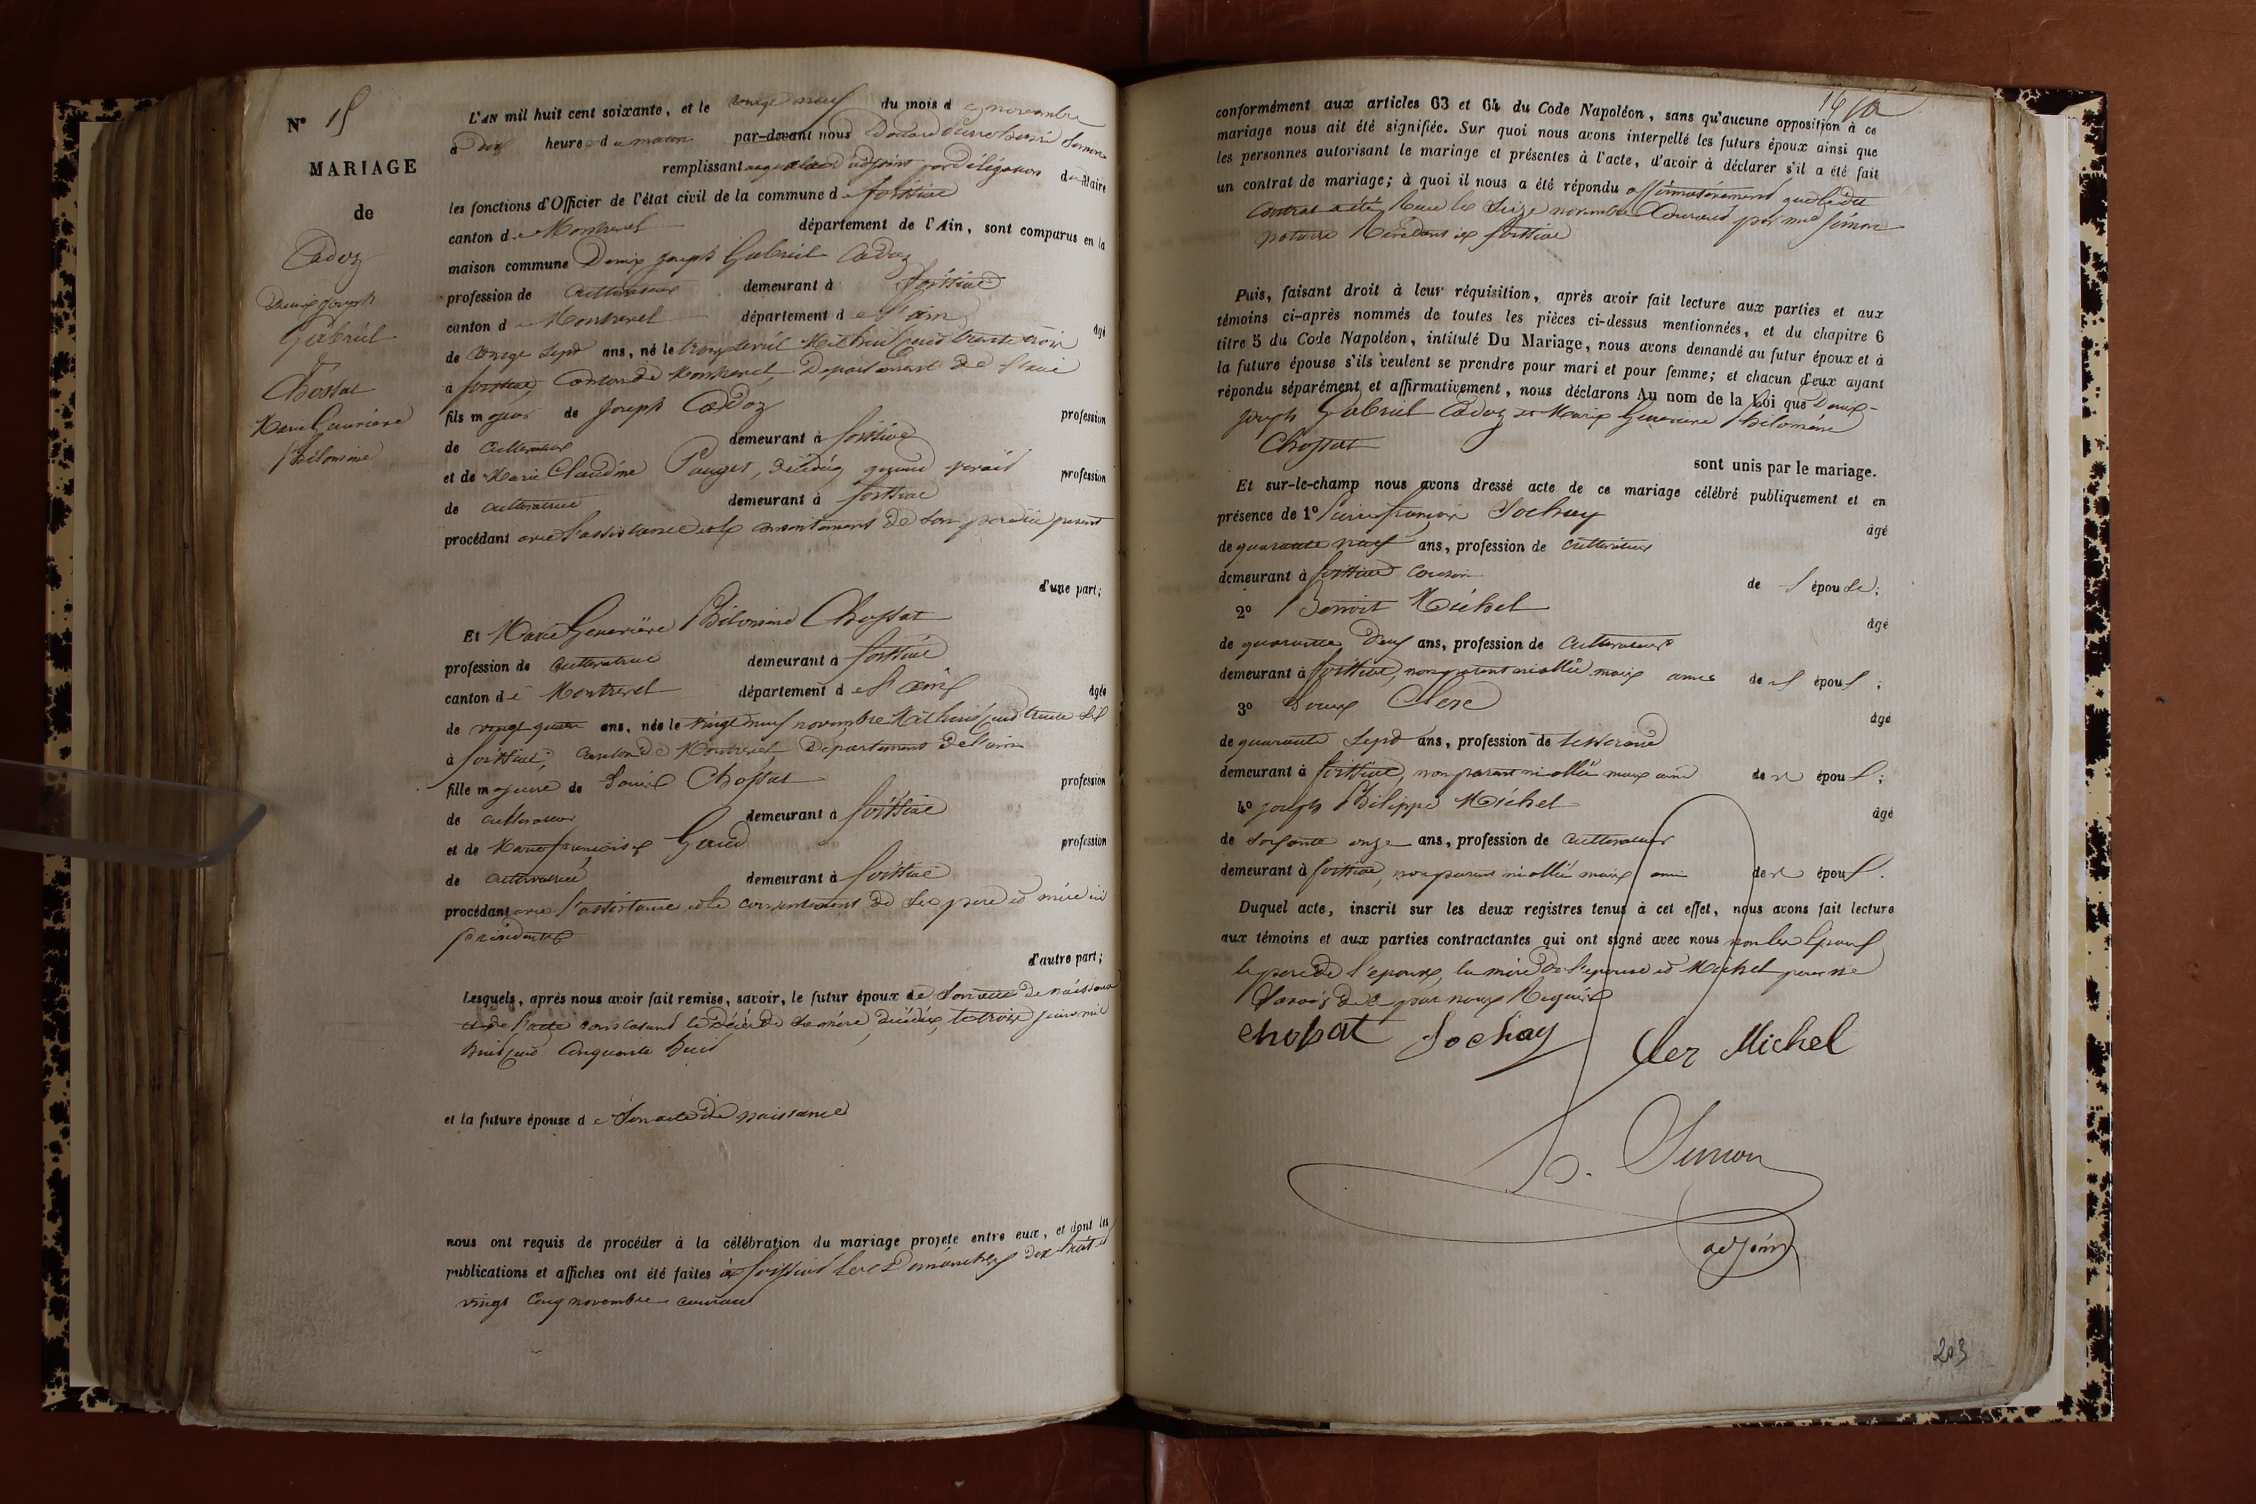 N° 15
MARIAGE
de
Cadoz
Denis Joseph
Gabriel
&
Chossat
Marie Geneviève
Philomène
L'AN mil huit cent soixante, et le vingt neuf du mois de novembre
à dix heures du matin par-devant nous Simon
remplissant adjoint par délégation du Maire
les fonctions d'Officier de l'état civil de la commune de foissiat
canton de Montrevel département de l'Ain, sont comparus en la
maison commune Denis joseph Gabriel Cadoz
profession de cultivateur demeurant à foissiat
canton de Montrevel département de l'ain âgé
de vingt sept ans, né le avril mil huit cent trente trois
à foissiat, canton de Montrevel, Département de l'ain
fils majeur de joseph Cadoz profession
de cultivateur demeurant à foissiat
et de Marie Claudine décédée profession
de cultivatrice demeurant à foissiat
procédant avec l'assistance et le consentement de son père ici présent
d'une part;
Et Marie Geneviève Philomène Chossat
profession de cultivatrice demeurant à foissiat
canton de Montrevel département de l'ain âgée
de vingt quatre ans, née le vingt neuf novembre mil huit cent trente six
à foissiat, canton de Montrevel, Département de l'ain
fille majeure de Louis Chossat profession
de cultivateur demeurant à foissiat
et de Marie françoise profession
de cultivatrice demeurant à foissiat
procédant avec l'assistance et le consentement de ses père et mère ici
présents
d'autre part;
Lesquels, après nous avoir fait remise, savoir, le futur époux de son acte de naissance
et de l'acte constatant le décès de sa mère, décédée, le trois juin mil
huit cent cinquante huit
et la future épouse de son acte de naissance
nous ont requis de procéder à la célébration du mariage projeté entre eux, et dont les
publications et affiches ont été faites à foissiat les Dimanches dix huit et
vingt cinq novembre courant
conformément aux articles 63 et 64 du Code Napoléon, sans qu'aucune opposition à ce
mariage nous ait été signifiée. Sur quoi nous avons interpellé les futurs époux ainsi que
les personnes autorisant le mariage et présentes à l'acte, d'avoir à déclarer s'il a été fait
un contrat de mariage; à quoi il nous a été répondu affirmativement que ledit
contrat a été reçu le seize novembre courant par me Simon
notaire résidant à foissiat
Puis, faisant droit à leur réquisition, après avoir fait lecture aux parties et aux
témoins ci-après nommés de toutes les pièces ci-dessus mentionnées, et du chapitre 6
titre 5 du Code Napoléon, intitulé Du Mariage, nous avons demandé au futur époux et à
la future épouse s'ils veulent se prendre pour mari et pour femme; et chacun d'eux ayant
répondu séparément et affirmativement, nous déclarons Au nom de la Loi que Denis
joseph Gabriel Cadoz et Marie Geneviève Philomène
Chossat
sont unis par le mariage.
Et sur-le-champ nous avons dressé acte de ce mariage célébré publiquement et en
présence de 1° Pierre françois Sochay âgé
de quarante neuf ans, profession de cultivateur
demeurant à foissiat cousin de l'épouse;
2° Benoit Michel âgé
de quarante deux ans, profession de cultivateur
demeurant à foissiat, non parent ni allié mais amis des époux;
3° Louis Clerc âgé
de quarante sept ans, profession de tisserand
demeurant à foissiat, non parent ni allié mais ami des époux;
4° joseph Philippe Michel âgé
de soixante onze ans, profession de cultivateur
demeurant à foissiat, non parent ni allié mais ami des époux.
Duquel acte, inscrit sur les deux registres tenus à cet effet, nous avons fait lecture
aux témoins et aux parties contractantes qui ont signé avec nous non les époux
le père de l'époux, la mère de l'épouse et Michel pour ne
savoir de ce par nous requis
chossat Sochay Clerc Michel
Simon
adjoint
203